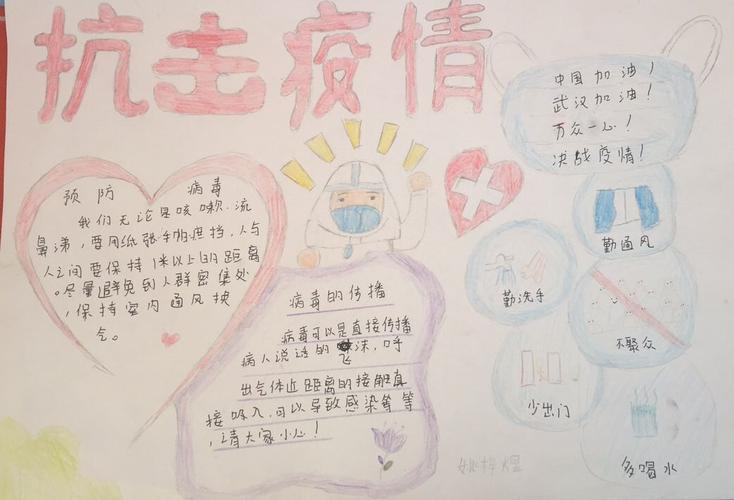 抗击疫情
中国加油！
武汉加油！
万众一心！
决战疫情！
预防病毒
我们无论是咳嗽、流
鼻涕，要用纸张手帕遮挡，人与
人之间要保持1米以上的距离
。尽量避免到人群密集处
，保持室内通风换
气。
病毒的传播
病毒可以是直接传播
病人说话的飞沫，呼
出气体近距离的接触直
接吸入，可以导致感染等等
，请大家小心！
勤通风
勤洗手
不聚众
少出门
多喝水